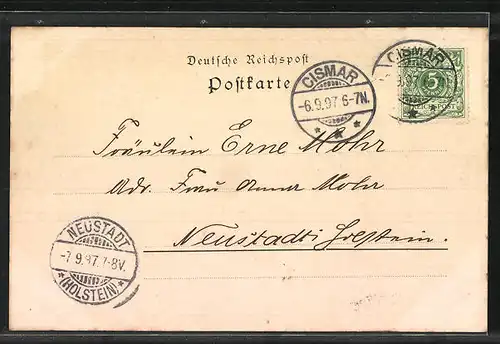 Deutsche Reichspost
Postkarte
CISMAR
-6.9.97 6-7N.
CISMAR
9.97
5
REICHSPOST
Fräulein Erne Mohr
Adr. Frau Anna Mohr
Neustadt i. Holstein.
NEUSTADT
-7.9.97.7-8V.
*(HOLSTEIN)*